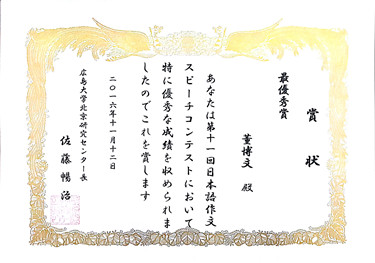 賞状
最優秀賞
董博文 殿
あなたは第十一回日本語作文
スピーチコンテストにおいて
特に優秀な成績を収められま
したのでこれを賞します
二〇一六年十一月十二日
広島大学北京研究センター長
佐藤暢治